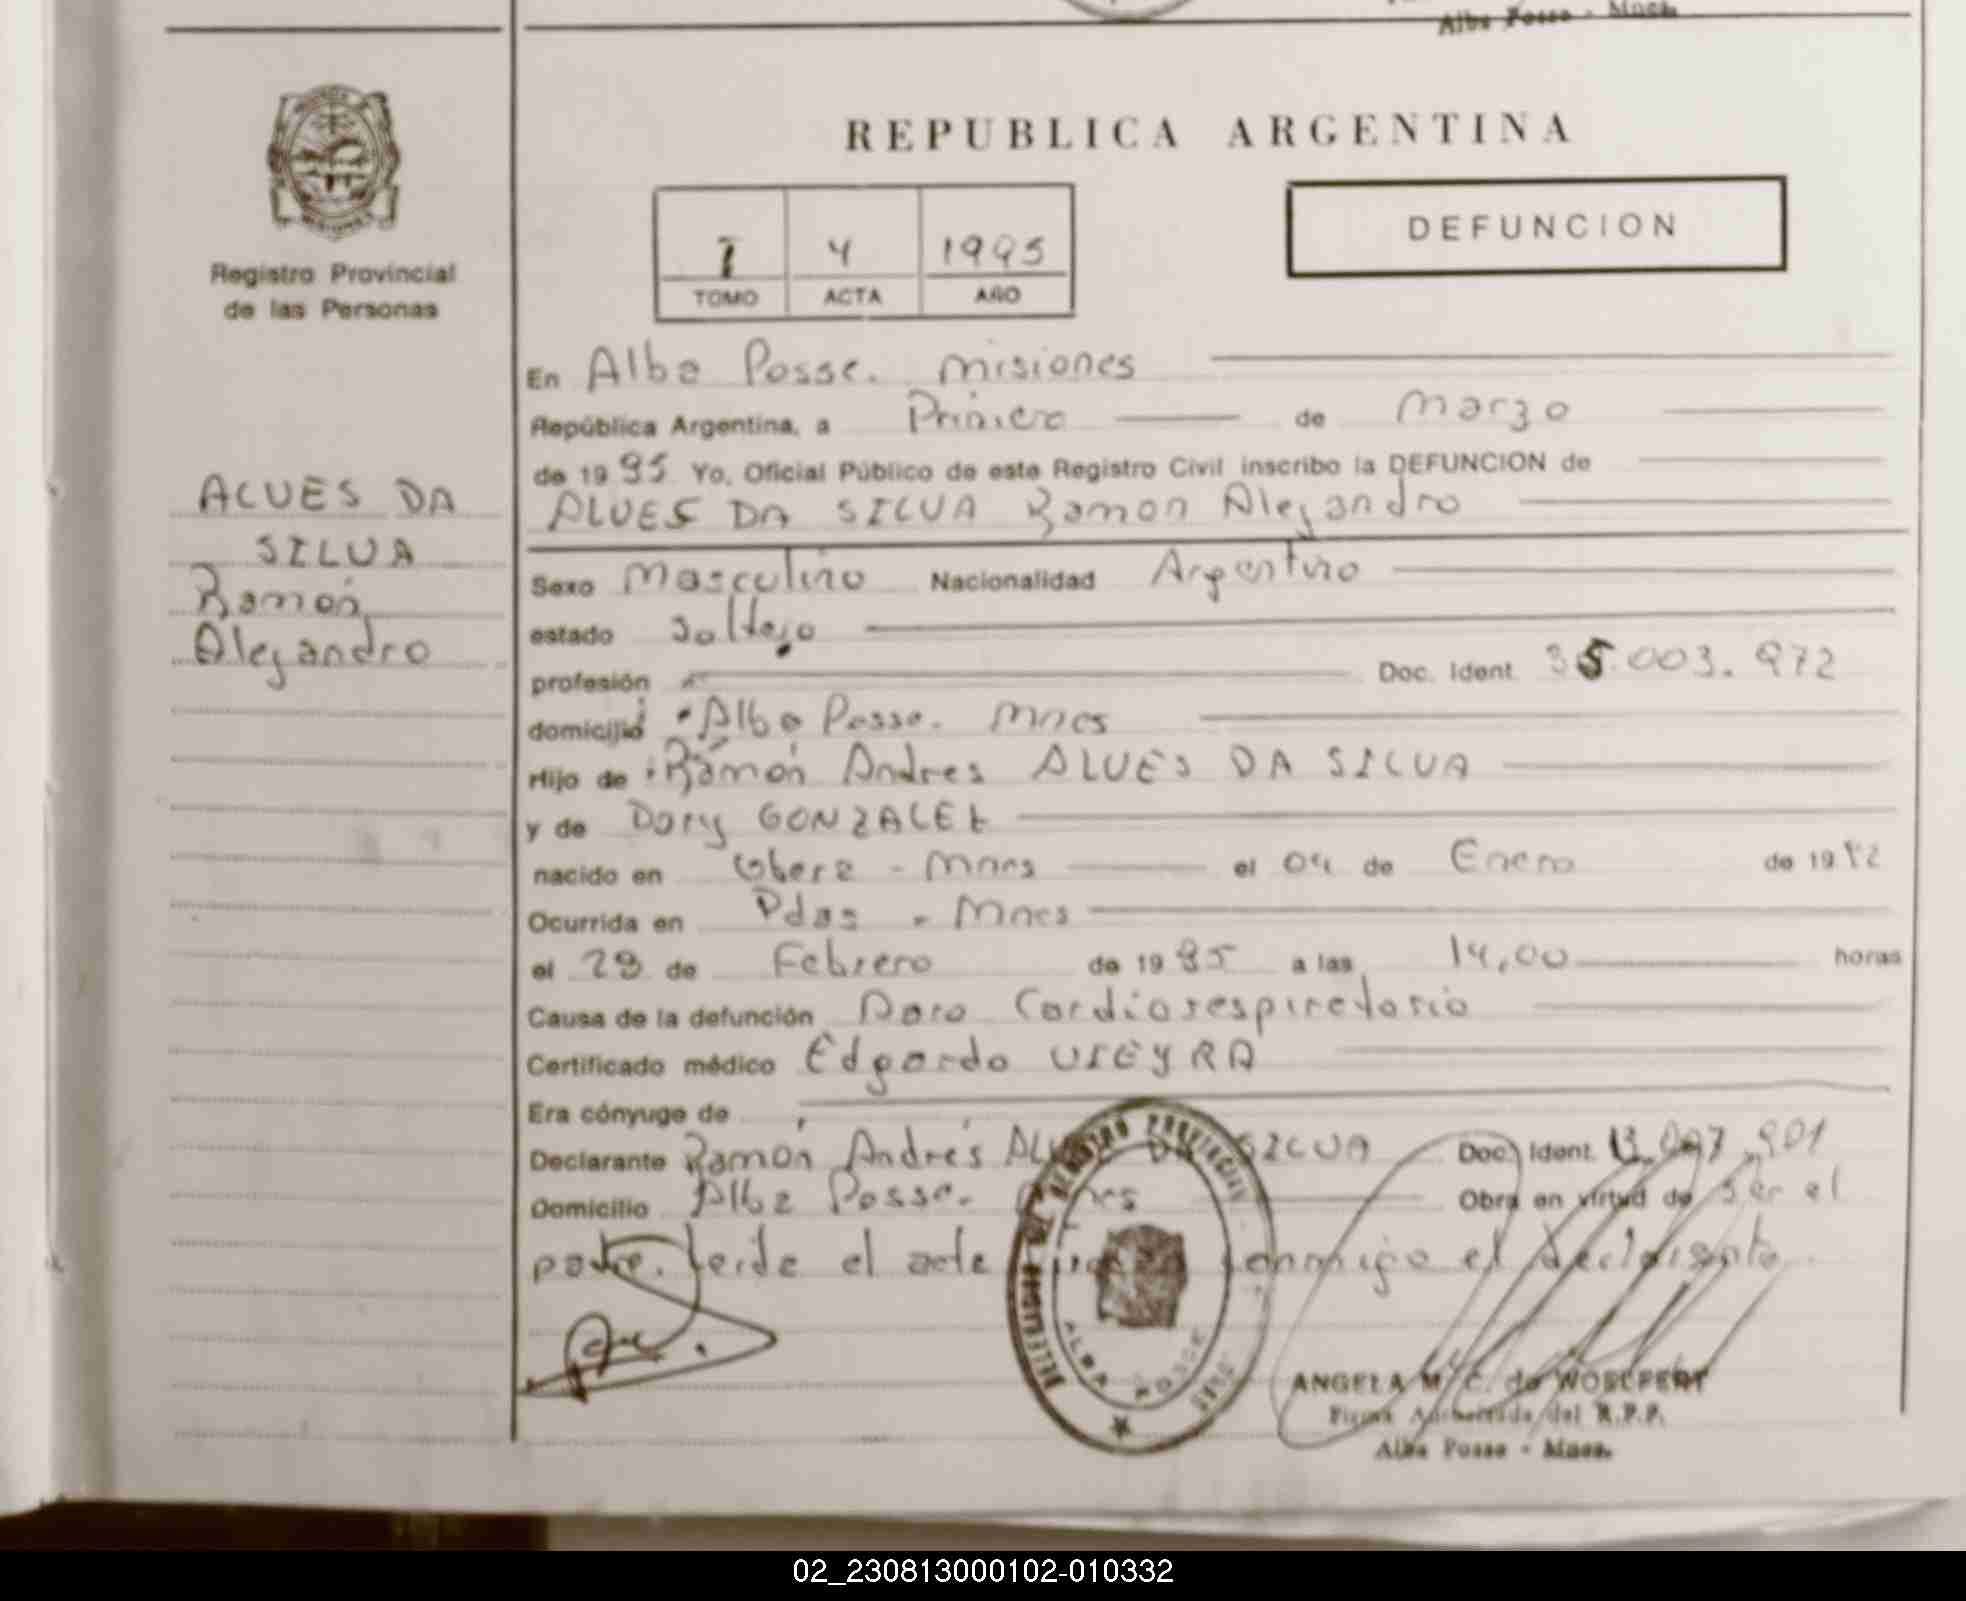 Alba Posse - Mnes.
REPUBLICA ARGENTINA
DEFUNCION
1 4 1995
TOMO ACTA AÑO
Registro Provincial
de las Personas
ALVES DA
SILVA
Ramón
Alejandro
En Alba Posse. Misiones
República Argentina, a Primero de Marzo
de 1995 Yo, Oficial Público de este Registro Civil inscribo la DEFUNCION de
ALVES DA SILVA Ramon Alejandro
Sexo Masculino Nacionalidad Argentino
estado Soltero
profesión Doc. Ident. 35.003.972
domicilio Alba Posse. Mnes
Hijo de Ramón Andres ALVES DA SILVA
y de Dory GONZALEZ
nacido en Obera - Mnes el 04 de Enero de 19
Ocurrida en Pdas - Mnes
el 28 de Febrero de 1995 a las 14,00 horas
Causa de la defunción Paro Cardiorespiratorio
Certificado médico Edgardo VIEYRA
Era cónyuge de
Declarante Ramón Andrés ALVES DA SILVA Doc. Ident. 901
Domicilio Alba Posse. Mnes Obra en virtud de ser el
padre. Leida el acta conmigo el declarante.
REGISTRO PROVINCIAL
ALBA POSSE
ANGELA M. C. de WOELFERT
Firma Autorizada del R.P.P.
Alba Posse - Mnes.
02_230813000102-010332